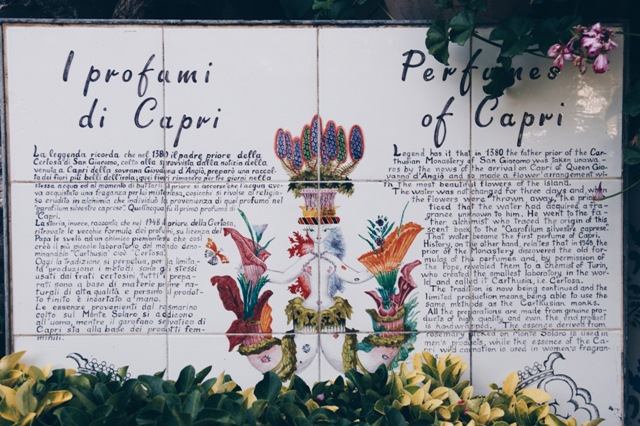 I profumi
di Capri
La leggenda ricorda che nel 1380 il padre priore della
Certosa di San Giacomo, colto alla sprovvista dalla notizia della
venuta a Capri della sovrana Giovanna d'Angiò, preparò una raccol-
ta dei fiori più belli dell'isola; quei fiori rimasero per tre giorni nella
stessa acqua ed al momento di buttarli il priore si accorse che l'acqua ave-
va acquistato una fragranza per lui misteriosa, così si rivolse al religio-
so erudito in alchimia che individuò la provenienza di quel profumo nel
"garofilum silvestre caprese". Quell'acqua fu il primo profumo di
Capri.
La storia, invece, racconta che nel 1948 il priore della Certosa,
ritrovate le vecchie formule dei profumi, su licenza del
Papa le svelò ad un chimico piemontese che così
creò il più piccolo laboratorio del mondo deno-
minandolo "Carthusia" cioè "Certosa".
Oggi la tradizione si perpetua, per la limita-
ta produzione i metodi sono gli stessi
usati dai frati certosini, tutti i prepa-
rati sono a base di materie prime na-
turali di alta qualità e persino il prodot-
to finito è incartato a mano.
Le essenze provenienti dal rosmarino
colto sul Monte Solaro si addicono
all'uomo, mentre il garofano selvatico di
Capri sta alla base dei profumi fem-
minili.
Perfumes
of Capri
Legend has it that in 1380 the father prior of the Car-
thusian Monastery of San Giacomo was taken unawa-
res by the news of the arrival in Capri of Queen Gio-
vanna d'Angiò and so made a flower arrangement wi-
th the most beautiful flowers of the Island.
The water was not changed for three days and when
the flowers were thrown away, the prior
noticed that the water had acquired a fra-
grance unknown to him. He went to the fa-
ther alchemist who traced the origin of this
scent back to the "Garofilum silvestre caprese".
That water became the first perfume of Capri.
History, on the other hand, relates that in 1948 the
prior of the Monastery discovered the old for-
mulas of the perfumes and, by permission of
the Pope, revealed them to a Chemist of Turin,
who created the smallest laboratory in the wor-
ld and called it Carthusia, i.e. Certosa.
The tradition is now being continued and the
limited production means being able to use the
same methods as the Carthusian monks.
All the preparations are made from genuine pro-
ducts of high quality and even the end product
is hand-wrapped. The essence derived from
rosemary picked on Monte Solaro is used in
men's products, while the essence of the Ca-
pri wild carnation is used in women's fragran-